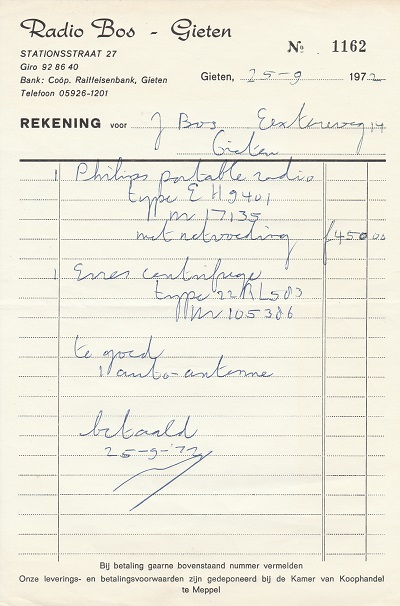 Radio Bos - Gieten
STATIONSSTRAAT 27
Giro 92 86 40
Bank: Coöp. Raiffeisenbank, Gieten
Telefoon 05926-1201
No 1162
Gieten, 25-9 1972
REKENING voor J Bos Eexterweg 14
Gieten
1 Philips portable radio
type E H9401
nr 17135
met netvoeding f 450 00
1 Erres centrifuge
type 22RL503
nr 105386
te goed
1 auto-antenne
betaald
25-9-'72
Bij betaling gaarne bovenstaand nummer vermelden
Onze leverings- en betalingsvoorwaarden zijn gedeponeerd bij de Kamer van Koophandel
te Meppel